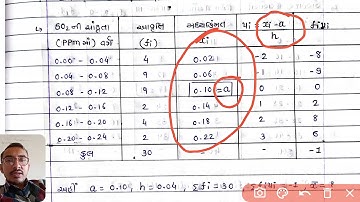 SO2ની સાંદ્રતા આવૃત્તિ મધ્યકિંમત ui = xi - a / h fiui
(PPmમાં) વર્ગ (fi) xi
0.00 - 0.04 4 0.02 -2 -8
0.04 - 0.08 9 0.06 -1 -9
0.08 - 0.12 9 0.10 = a 0 0
0.12 - 0.16 2 0.14 1 2
0.16 - 0.20 4 0.18 2 8
0.20 - 0.24 2 0.22 3 6
કુલ 30 - - -1
અહીં a = 0.10, h = 0.04, Σfi = 30 Σfiui = -1, x̄ = ?